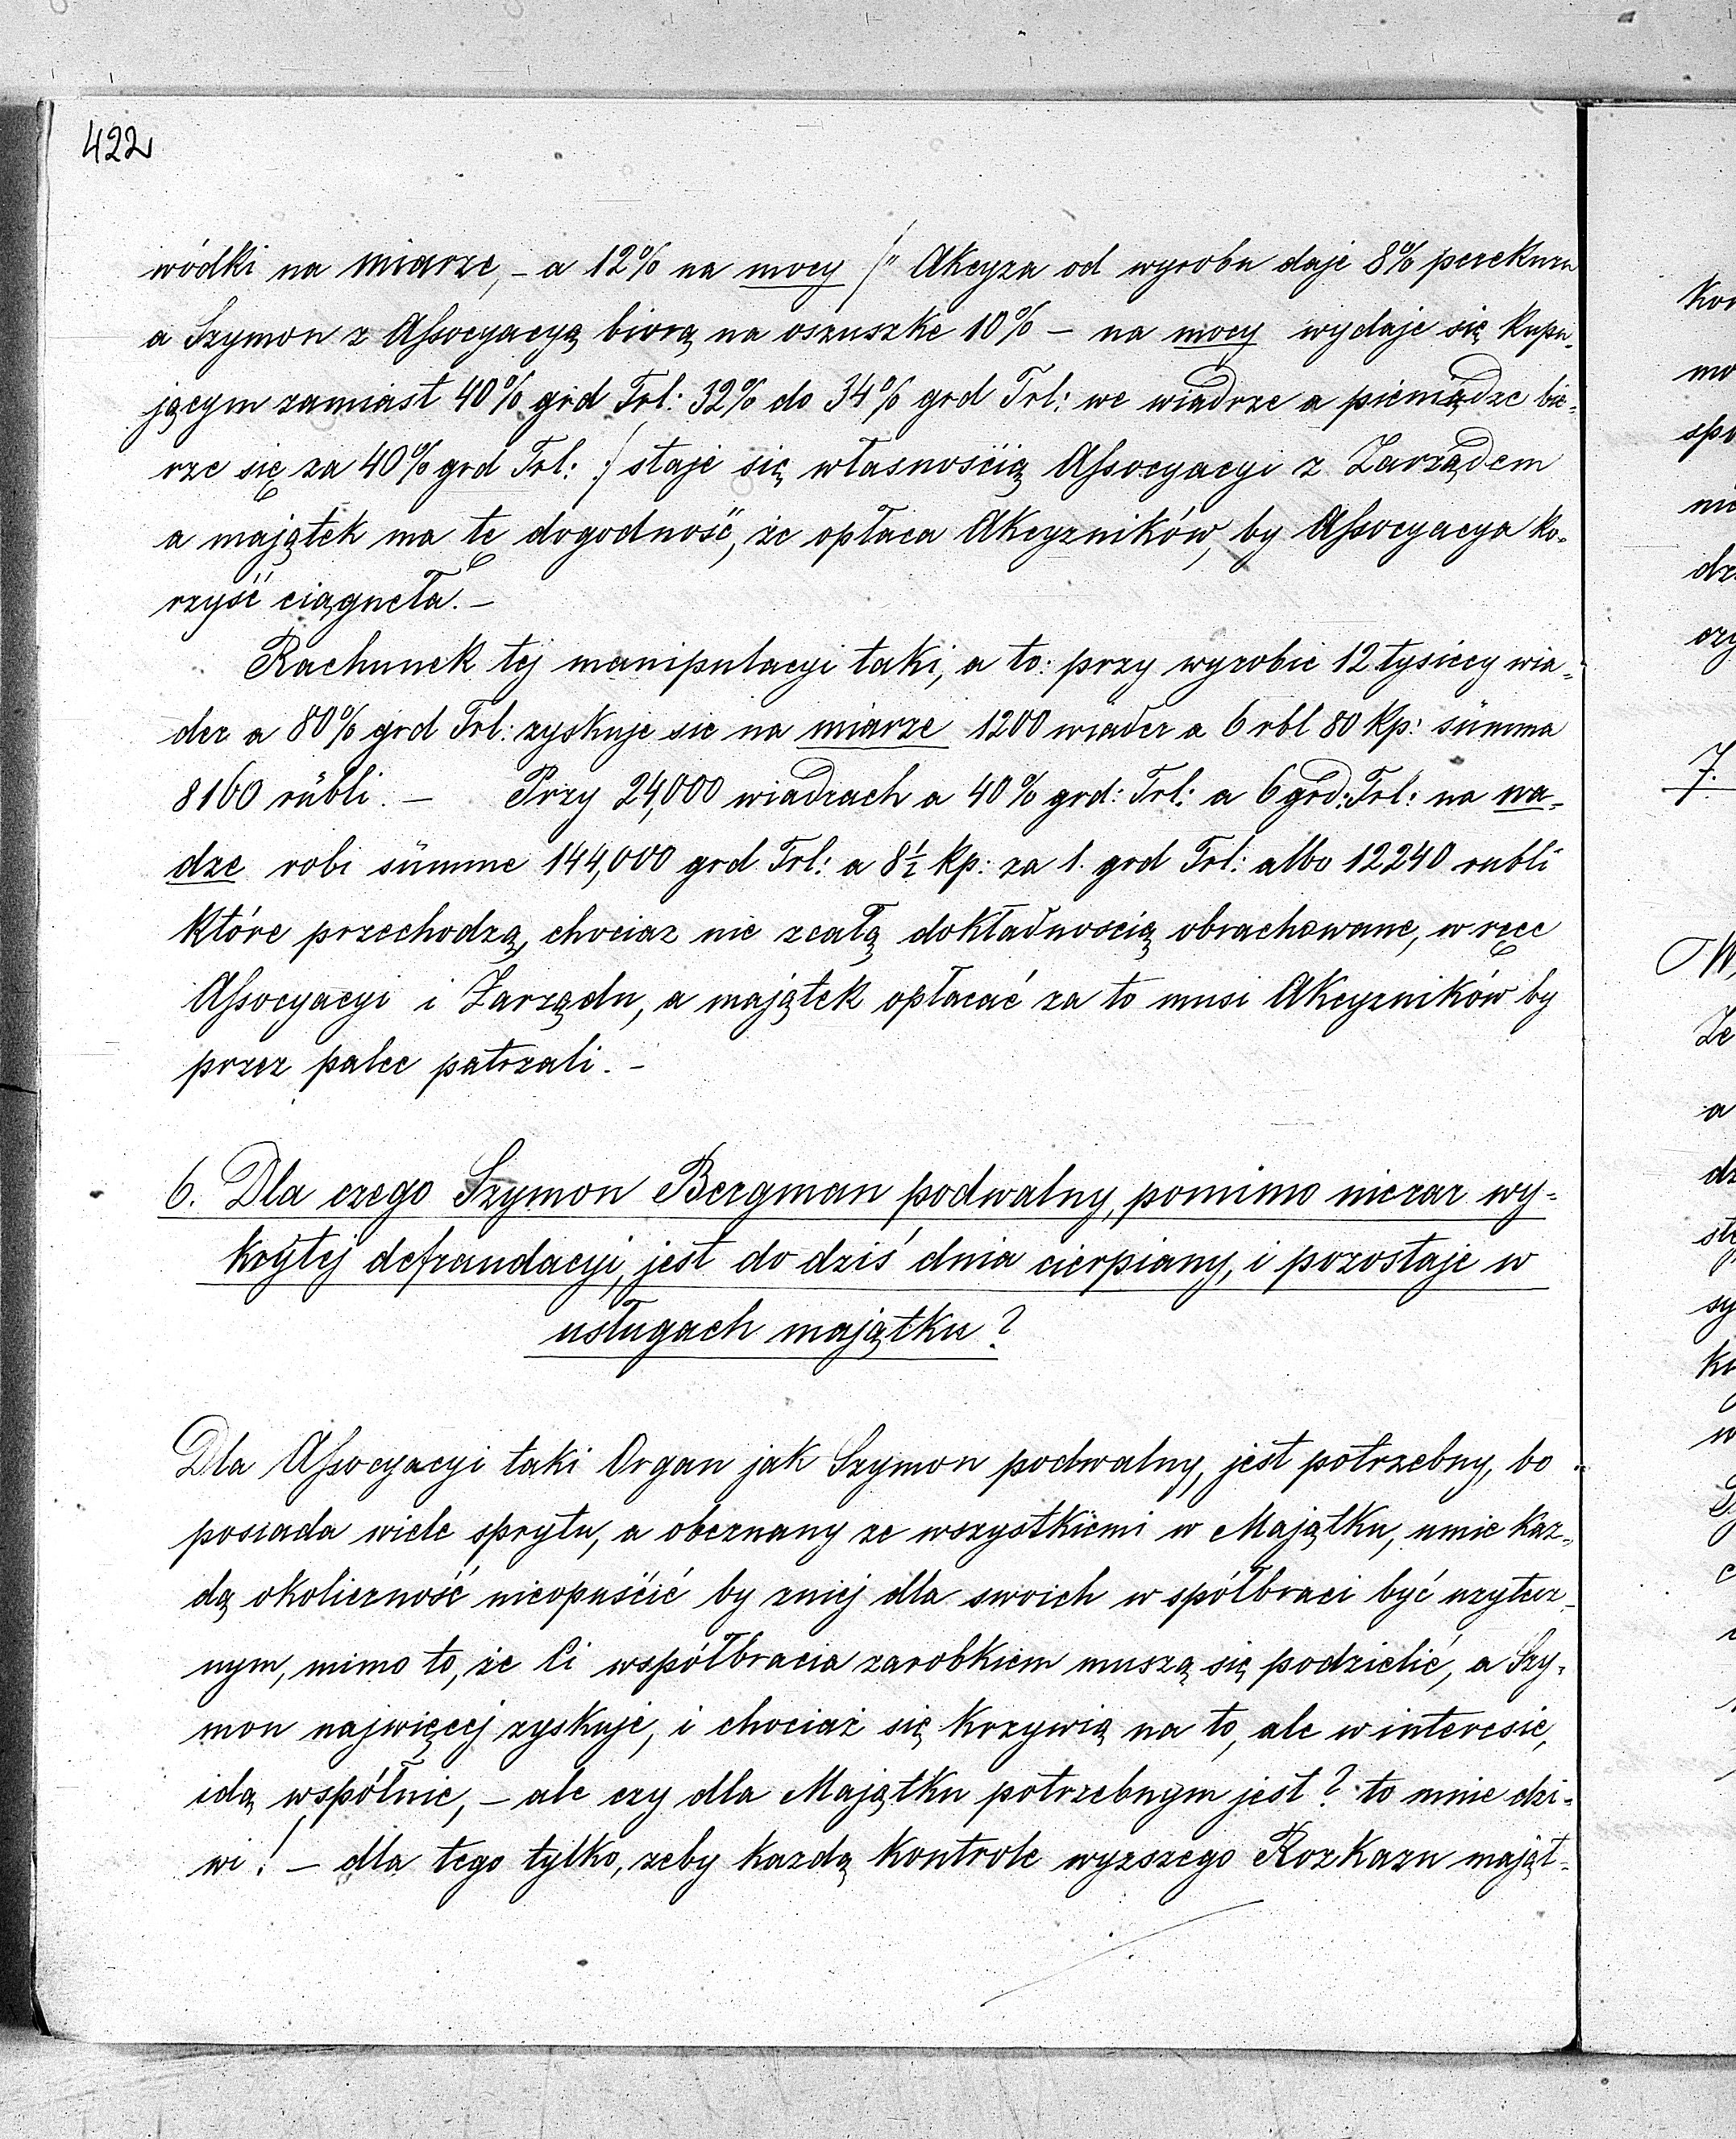 422
wódki na miarze, – a 12% na mocy /" Akcyza od wyrobu daje 8% perekuru
a Szymon z Assocyacyą biorą na oszuszke 10% – na mocy wydaje się kupu-
jącym zamiast 40% grd Trl: 32% do 34% grd Trl: we wiadrze a pieniądze bie-
rze się za 40% grd Trl: :/ staje się własnością Assocyacyi z Zarządem
a majątek ma tę dogodność, że opłaca Akcyzników, by Assocyacya ko-
rzyść ciągneła. –
Rachunek tej manipulacyi taki, a to: przy wyrobie 12 tysiecy wia-
der a 80% grd Trl: zyskuje sie na miarze 1200 wiader a 6 rbl 80 kp: summa
8160 rubli. – Przy 24,000 wiadrach a 40% grd: Trl: a 6 grd: Trl: na wa-
dze robi summe 144,000 grd Trl: a 8½ kp: za 1. grd Trl: albo 12240 rubli
które przechodzą, chociaz nie zcałą dokładnoscią obrachowane, w ręce
Assocyacyi i Zarządu, a majątek opłacać za to musi Akcyzników by
przez palce patrzali. –
6. Dla czego Szymon Bergman podwalny, pomimo nieraz wy-
krytej defraudacyi, jest do dziś dnia cierpiany, i pozostaje w
usługach majątku?
Dla Assocyacyi taki Organ jak Szymon podwalny, jest potrzebny, bo
posiada wiele sprytu, a obeznany ze wszystkiemi w Majątku, umie kaz-
dą okoliczność nieopuścić by zniej dla swoich współbraci być uzytecz-
nym, mimo to, że Ci współbracia zarobkiem muszą się podzielić, a Szy-
mon najwięcej zyskuje, i chociaż się krzywią na to, ale w interesie,
idą wspólnie, – ale czy dla Majątku potrzebnym jest? to mnie dzi-
wi! – dla tego tylko, zeby kazdą kontrole wyzszego Rozkazu mająt-
7.